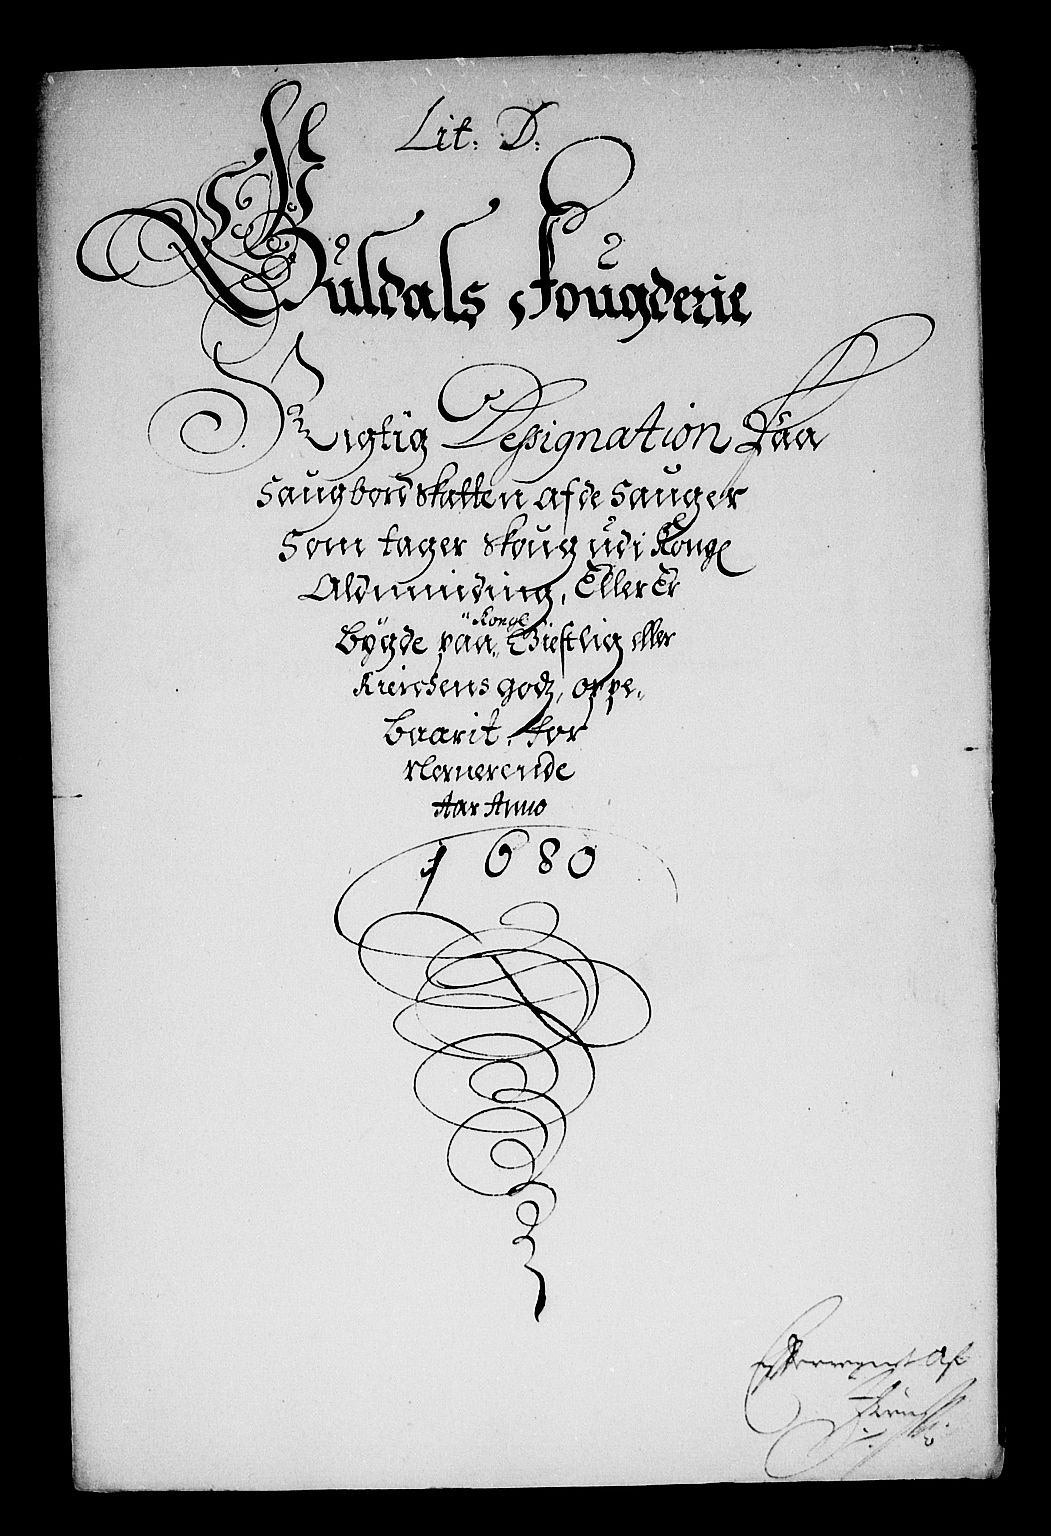 Lit: D:
Guldals Fougderie
Rigtig Designation Paa
Saugbord Skatten af de Sauger
Som tager Skoug udi Konge
Aldminding, Eller Er
bÿgde paa, Kongl Giestlig eller
Kreichens godz, oppe,,
baarit, for
nerverende
Aar Anno
1680
Efterreignet Af